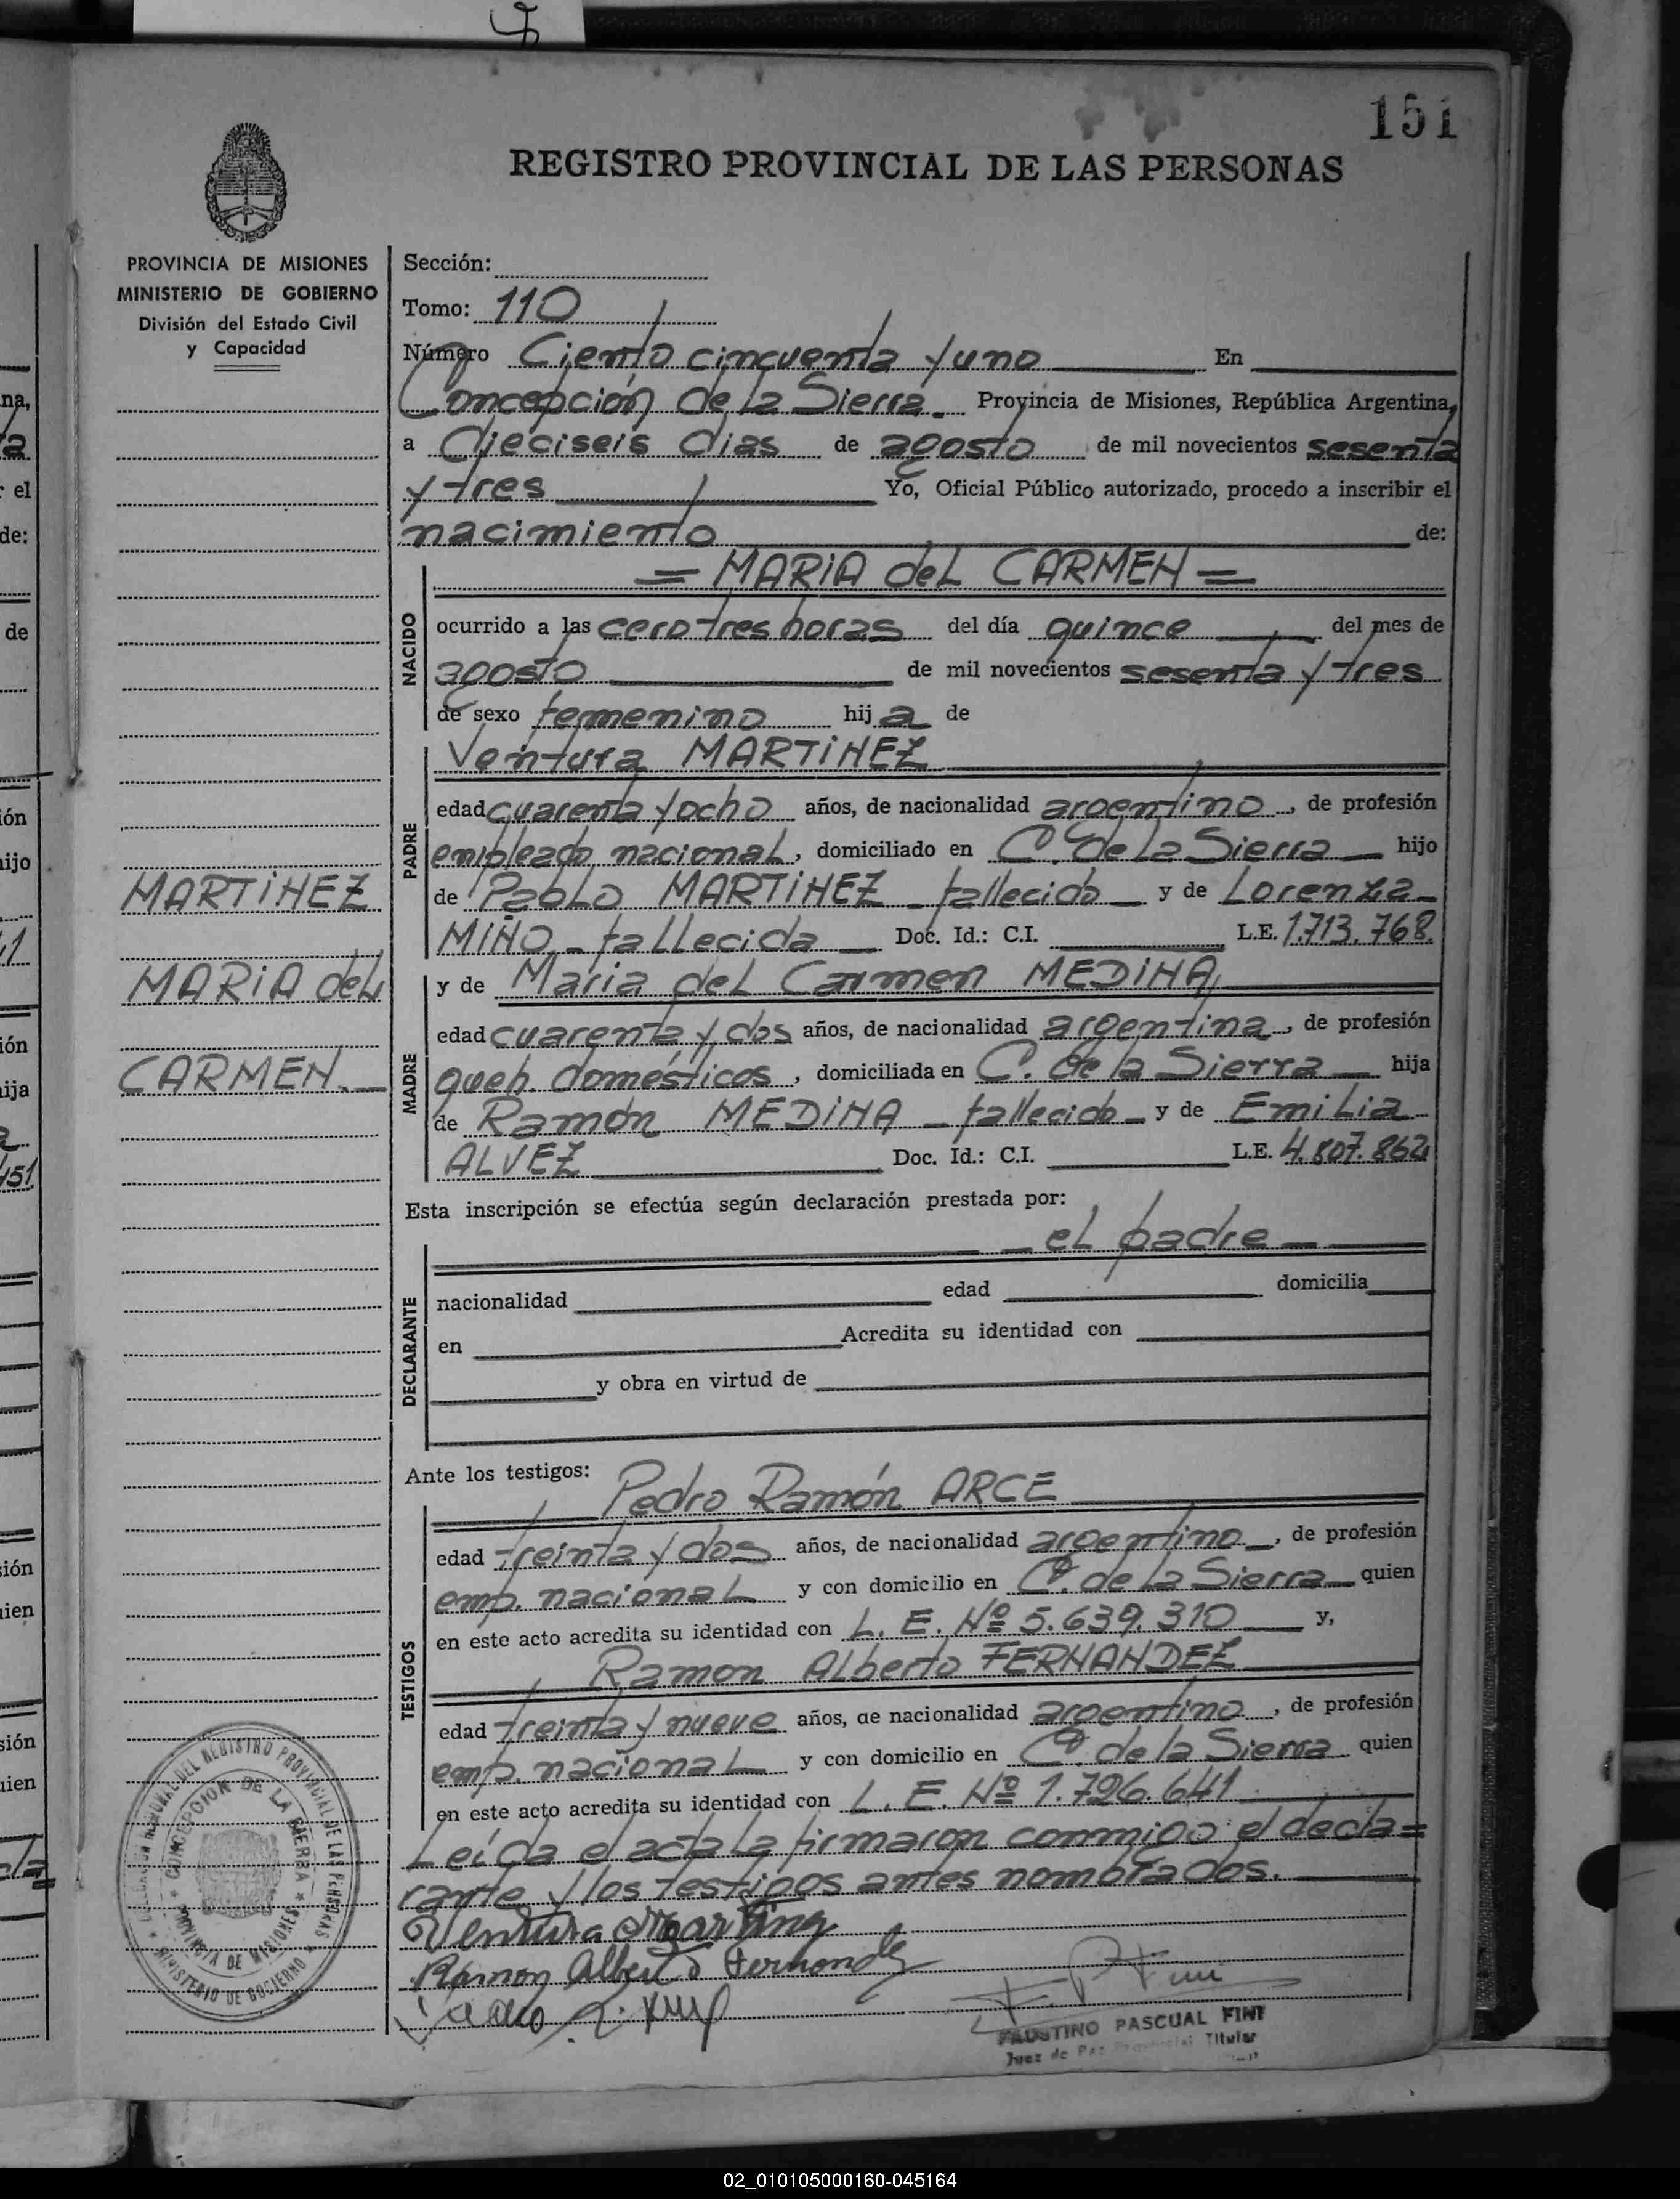 151
REGISTRO PROVINCIAL DE LAS PERSONAS
PROVINCIA DE MISIONES
MINISTERIO DE GOBIERNO
División del Estado Civil
y Capacidad
MARTINEZ
MARIA del
CARMEN.
Sección:
Tomo: 110
Número Ciento cincuenta y uno En
Concepción de la Sierra. Provincia de Misiones, República Argentina,
a dieciseis dias de agosto de mil novecientos sesenta
y tres Yo, Oficial Público autorizado, procedo a inscribir el
nacimiento de:
= MARIA del CARMEN =
NACIDO
ocurrido a las cero tres horas del día quince del mes de
agosto de mil novecientos sesenta y tres
de sexo femenino hij a de
Ventura MARTINEZ
PADRE
edad cuarenta y ocho años, de nacionalidad argentino, de profesión
empleado nacional, domiciliado en C. de la Sierra hijo
de Pablo MARTINEZ - fallecido y de Lorenza
MIÑO - fallecida Doc. Id.: C.I. L.E. 1.713.768.
y de Maria del Carmen MEDINA
MADRE
edad cuarenta y dos años, de nacionalidad argentina, de profesión
queh. domésticos, domiciliada en C. de la Sierra hija
de Ramón MEDINA - fallecido - y de Emilia
ALVEZ Doc. Id.: C.I. L.E. 4.807.862
Esta inscripción se efectúa según declaración prestada por:
el padre
DECLARANTE
nacionalidad edad domicilia
en Acredita su identidad con
y obra en virtud de
Ante los testigos: Pedro Ramón ARCE
TESTIGOS
edad treinta y dos años, de nacionalidad argentino, de profesión
emp. nacional y con domicilio en Cº. de la Sierra quien
en este acto acredita su identidad con L. E. Nº 5.639.310 y,
Ramon Alberto FERNANDEZ
edad treinta y nueve años, de nacionalidad argentino, de profesión
emp. nacional y con domicilio en Cº de la Sierra quien
en este acto acredita su identidad con L. E. Nº 1.796.641
Leída el acta la firmaron conmigo el decla=
rante y los testigos antes nombrados.
Ventura Martinez
Ramon Alberto Fernandez
F. P. Fini
FAUSTINO PASCUAL FINI
Juez de Paz Titular
DEL REGISTRO PROVINCIAL DE LAS PERSONAS
CONCEPCION DE LA SIERRA
PROVINCIA DE MISIONES
MINISTERIO DE GOBIERNO
02_010105000160-045164